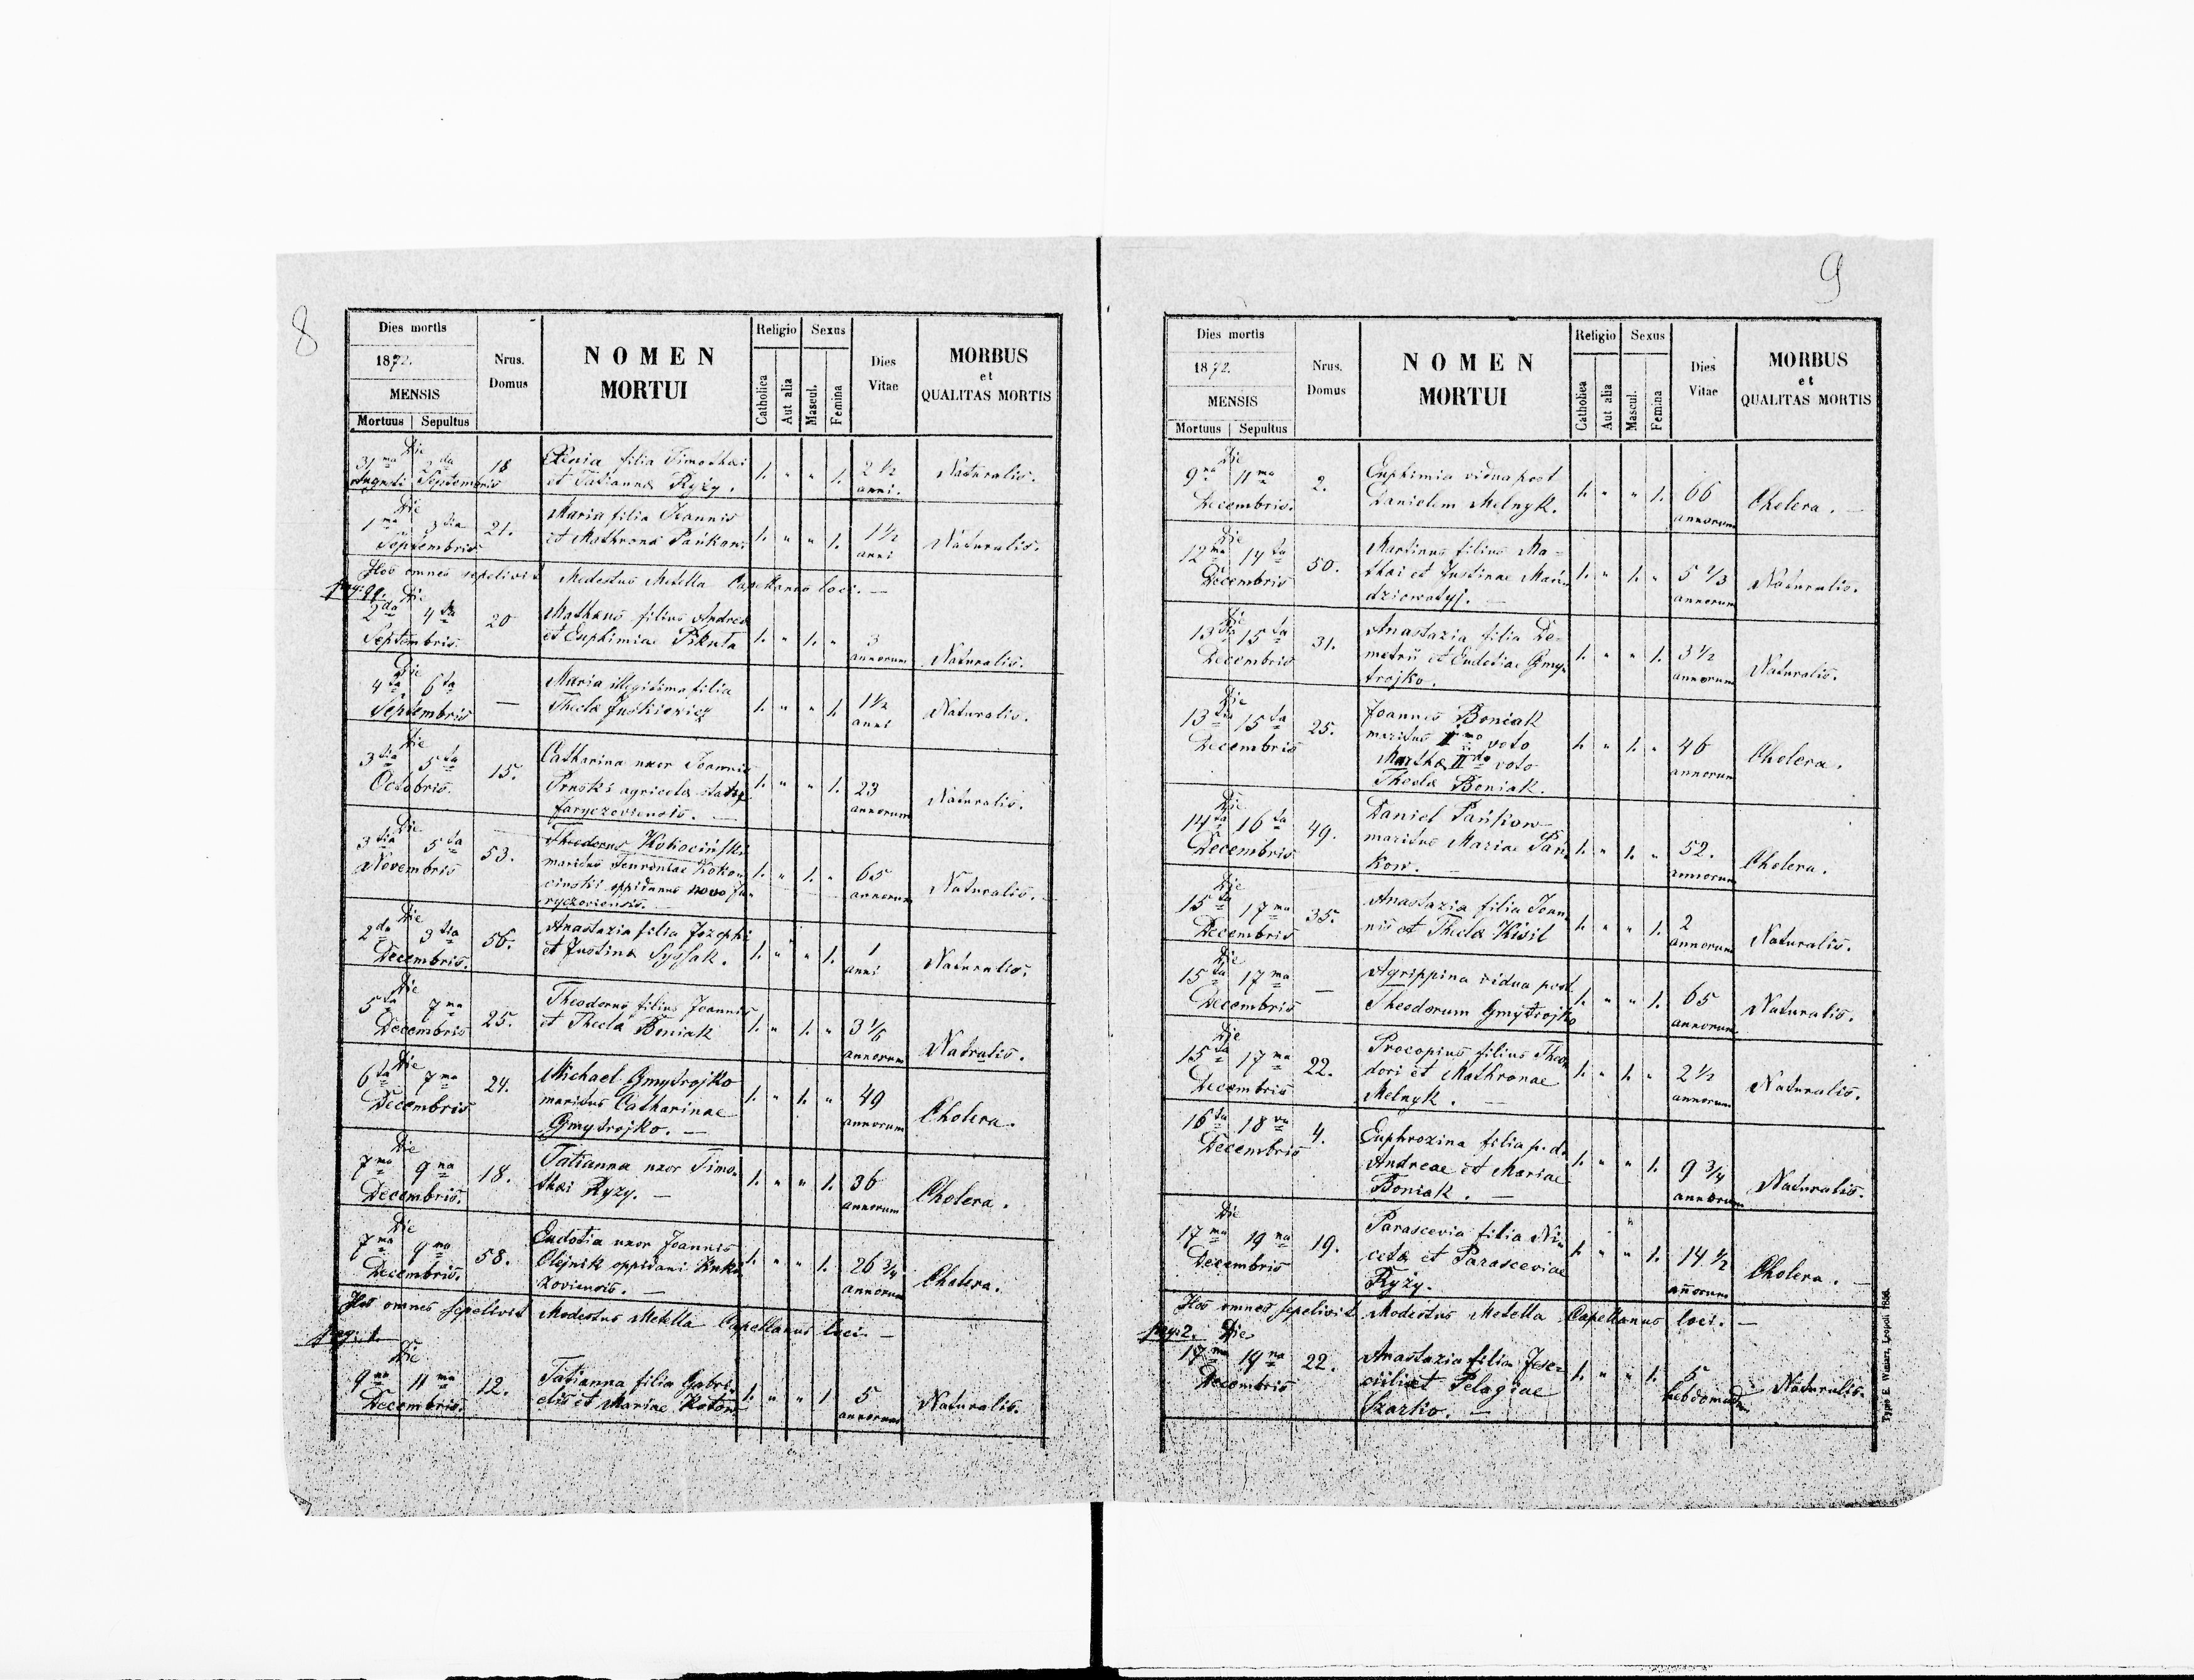 8
Dies mortis
1872.
MENSIS
Mortuus Sepultus
Nrus. Domus
NOMEN MORTUI
Religio
Catholica Aut alia
Sexus
Mascul. Femina
Dies Vitae
MORBUS et QUALITAS MORTIS
Die
31ma 2da 18 Xenia filia Timothei 1. " " 1. 2 1/2 Naturalis.
Augusti Septembris et Tatianna Ryży. anni.
Die
1ma 3tia 21. Maria filia Joannis 1. " " 1. 1 1/2 Naturalis.
Septembris et Mathrona Pańkow. anni
Hos omnes sepelivit Modestus Metella Capellanus loci. —
Die
2da 4ta 20 Matheus filius Andrea 1. " 1. " 3 Naturalis.
Septembris. et Euphimiae Pikuta annorum
Die
4ta 6ta — Maria illegitima filia 1. " " 1. 1 1/2 Naturalis.
Septembris Thecla Juśkiewicz anni
Die
3tia 5ta 15. Catharina uxor Joannis 1. " " 1. 23 Naturalis.
Octobris. Pruski agricola annorum
Jaryczoviensis. —
Die
3tia 5ta 53. Theodorus Kokociński 1. " 1. " 65 Naturalis.
Novembris maritus Kokoń- annorum
cinskii oppidanus novo Ja-
ryczoviensis. —
Die
2da 3tia 56. Anastazia filia Jozephi 1. " " 1. 1 Naturalis.
Decembris. et Justina Syssak. anni
Die
5ta 7ma 25. Theodorus filius Joannis 1. " 1. " 3 1/6 Natralis.
Decembris et Thecla Boniak annorum
Die
6ta 7ma 24. Michael Gmytrojko 1. " 1. " 49 Cholera.
Decembris maritus Catharinae annorum
Gmytrojko. —
Die
7ma 9na 18. Tatianna uxor Timo- 1. " " 1. 36 Cholera.
Decembris. thei Ryzy. — annorum
Die
7ma 9na 58. Eudotia uxor Joannis 1. " " 1. 26 3/4 Cholera.
Decembris. Olejnik oppidani Kuki- annorum
zoviensis. —
Hos omnes sepelivit Modestus Metella Capellanus loci. —
pag: 1.
Die
9na 11ma 12. Tatianna filia Gabri- 1. " " 1 5 Naturalis.
Decembris. elis et Mariae Kotow annorum
9
Dies mortis
1872.
MENSIS
Mortuus Sepultus
Nrus. Domus
NOMEN MORTUI
Religio
Catholica Aut alia
Sexus
Mascul. Femina
Dies Vitae
MORBUS et QUALITAS MORTIS
Die
9na 11ma 2. Euphimia vidua post 1. " " 1. 66 Cholera. —
Decembris. Danielem Melnyk. annorum
Die
12ma 14ta 50. Martinus filius Ma- 1. " 1. " 5 2/3 Naturalis.
Decembris thei et Justinae Mań- annorum
dziowatyj. —
Die
13tia 15ta 31. Anastazia filia De- 1. " " 1. 3 1/2 Naturalis.
Decembris metrii et Eudotiae Gmy- annorum
trojko.
Die
13tia 15ta 25. Joannes Boniak 1. " 1. " 46 Cholera.
Decembris maritus Imo voto annorum
Martha IIdo voto
Thecla Boniak.
Die
14ta 16ta 49. Daniel Pańkow 1. " 1. " 52. Cholera.
Decembris maritus Mariae Pań- annorum
kow. —
Die
15ta 17ma 35. Anastazia filia Joan- 1. " " 1. 2 Naturalis.
Decembris nis et Thecla Kisil annorum
Die
15ta 17ma — Agrippina vidua post 1. " " 1. 65 Naturalis.
Decembris Theodorum Gmytrojko annorum
Die
15ta 17ma 22. Procopius filius Theo- 1. " 1. " 2 1/2 Naturalis.
Decembris dori et Mathronae annorum
Melnyk. —
16ta 18va 4. Euphrozina filia p. d. 1. " " 1. 9 3/4 Naturalis.
Decembris Andreae et Mariae annorum
Boniak. —
Die
17ma 19na 19. Parascevia filia Ni- 1. " " 1. 14 1/2 Cholera. —
Decembris ceta et Parasceviae annorum
Ryży.
Hos omnes sepelivit Modestus Metella Capellanus loci. —
pag: 2. Die
17ma 19na 22. Anastazia filia 1. " " 1. 5 Naturalis.
Decembris et Pelagiae hebdomadum
Szarko. —
Typis E. Winiarz, Leopoli 1856.